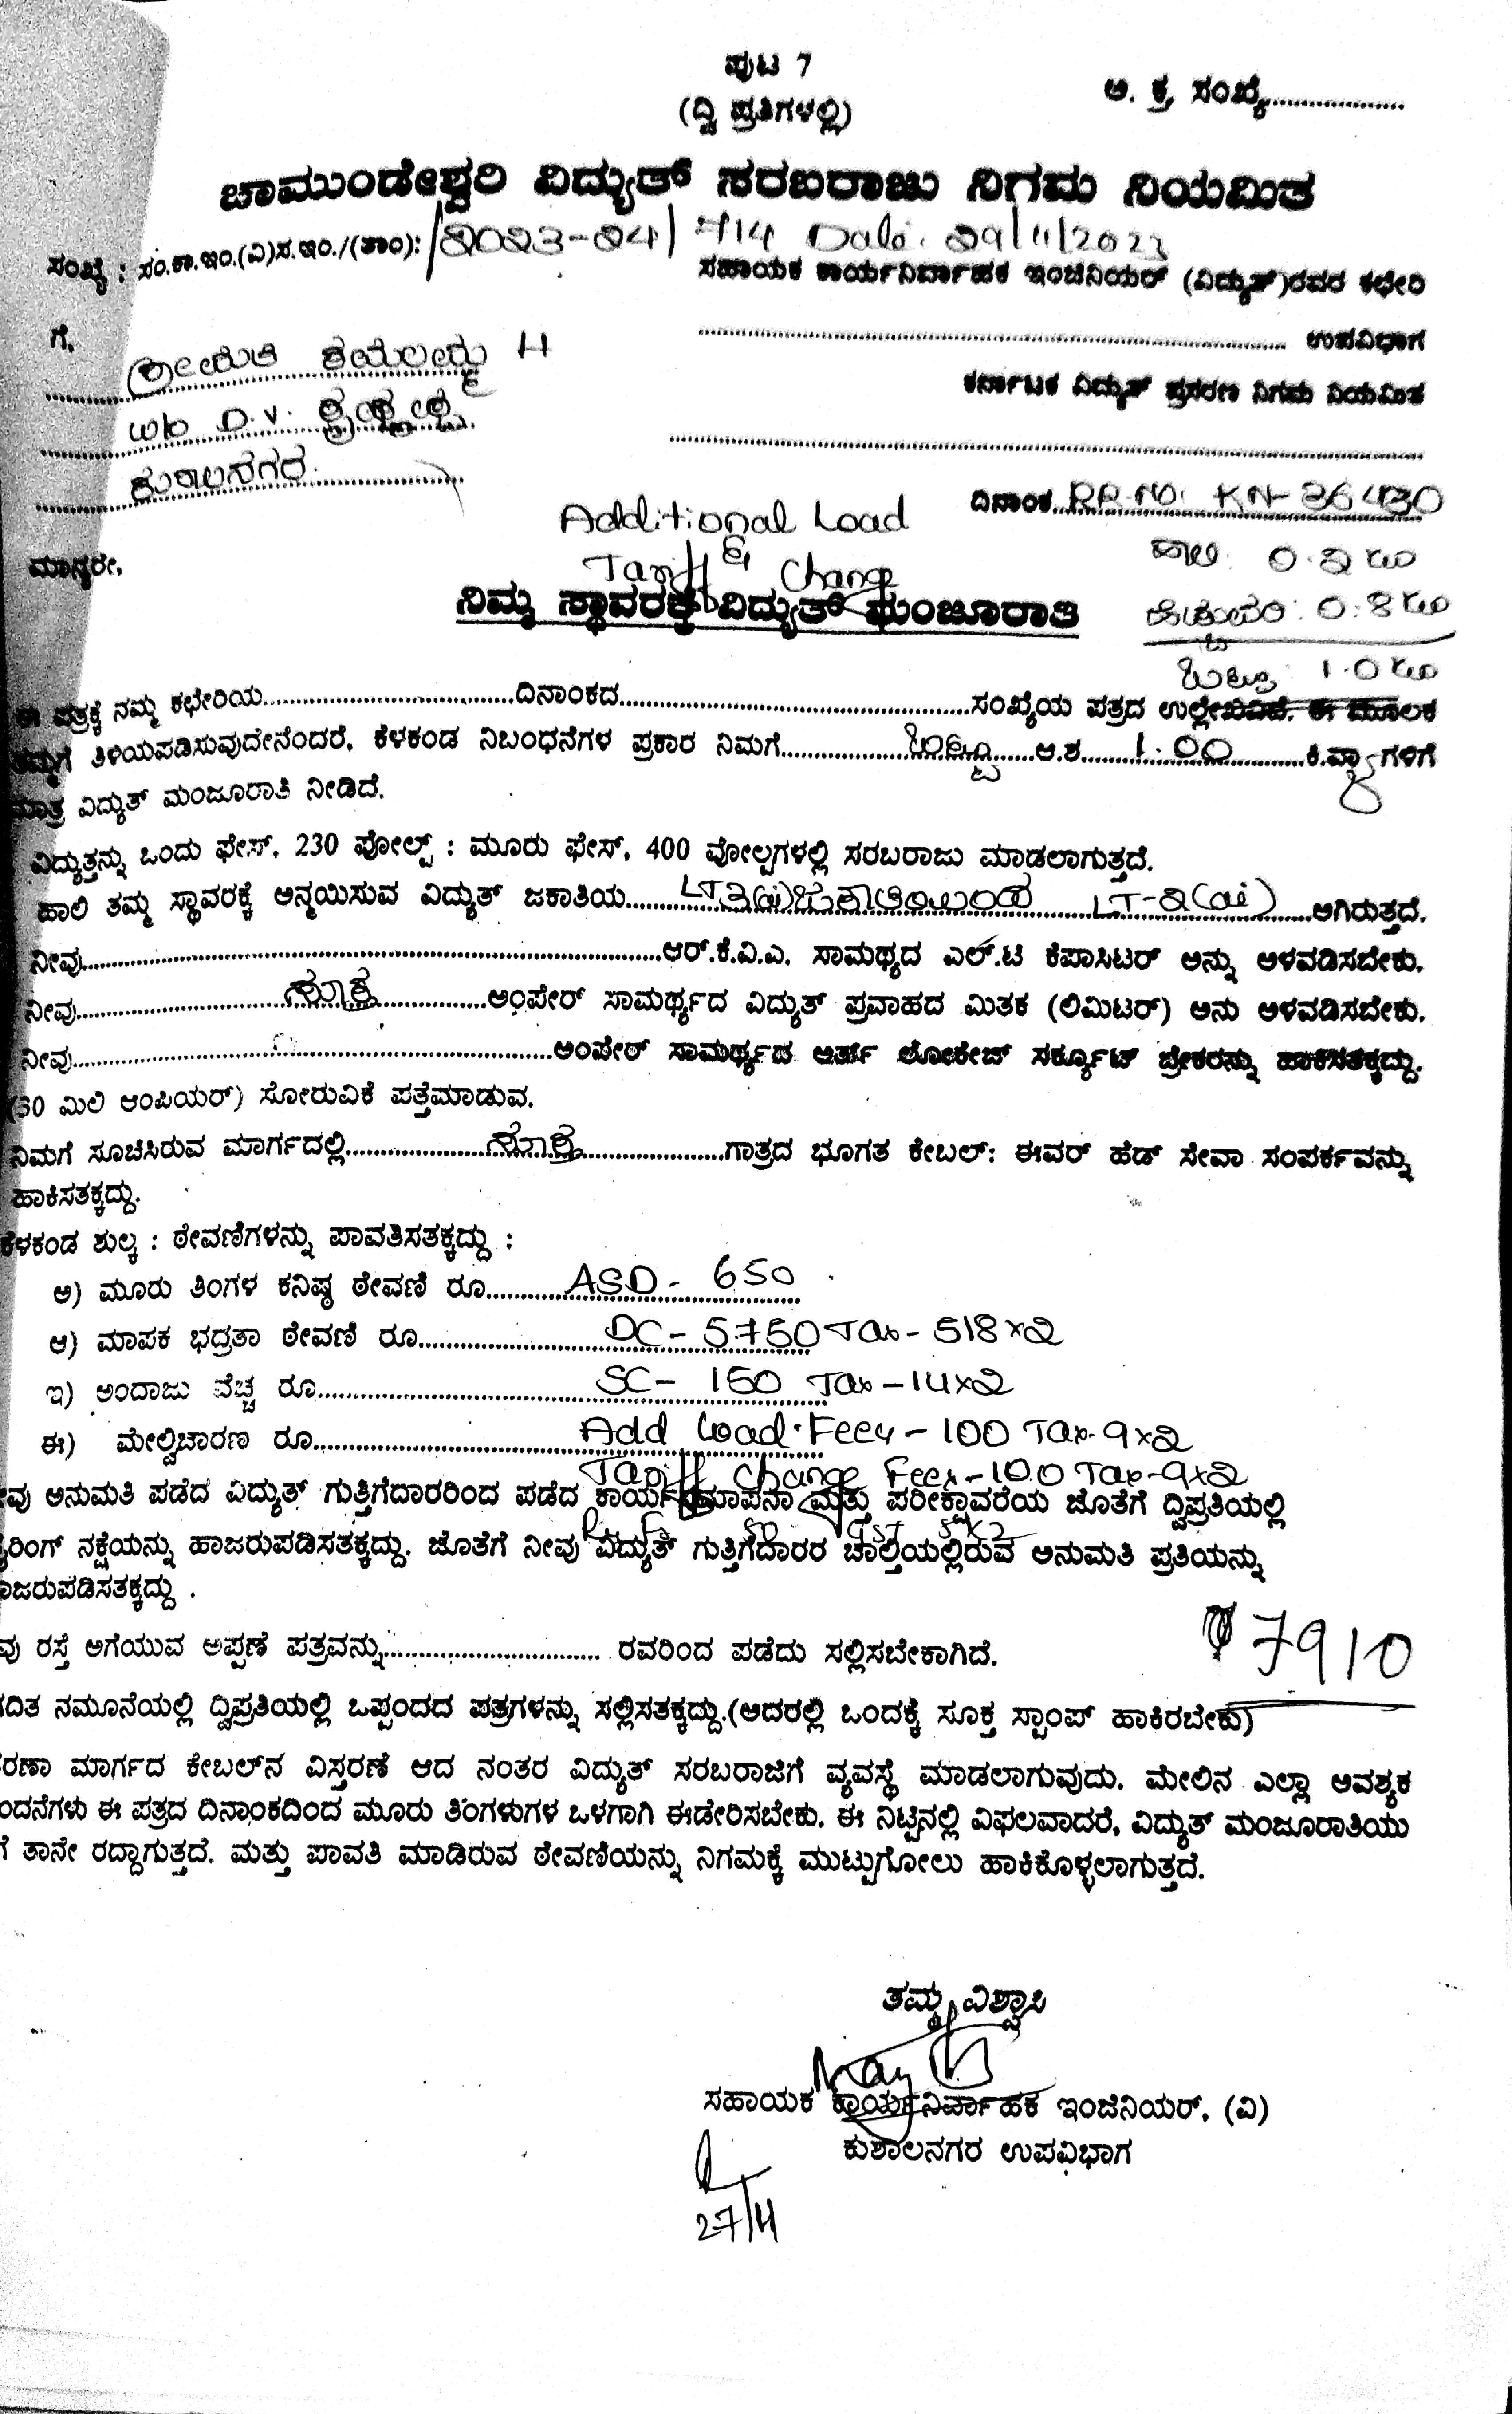 ಪುಟ 7
(ದ್ವಿ ಪ್ರತಿಗಳಲ್ಲಿ)
ಅ. ಕ್ರ. ಸಂಖ್ಯೆ....................
ಚಾಮುಂಡೇಶ್ವರಿ ವಿದ್ಯುತ್ ಸರಬರಾಜು ನಿಗಮ ನಿಯಮಿತ
ಸಂಖ್ಯೆ : ಸಂ.ಕಾ.ಇಂ.(ವಿ)ಸ.ಇಂ./(ತಾಂ): /2023-24/ 714 Date: 09/11/2023
ಸಹಾಯಕ ಕಾರ್ಯನಿರ್ವಾಹಕ ಇಂಜಿನಿಯರ್ (ವಿದ್ಯುತ್)ರವರ ಕಛೇರಿ
ಗೆ,
.................... ಉಪವಿಭಾಗ
ಶ್ರೀಮತಿ H
ಕರ್ನಾಟಕ ವಿದ್ಯುತ್ ಪ್ರಸರಣ ನಿಗಮ ನಿಯಮಿತ
W/o D.V.
ಕುಶಾಲನಗರ.
ದಿನಾಂಕ RR No: KN-36430
Additional Load
& Tariff Change
ಹಾಲಿ: 0.2 kw
ಮಾನ್ಯರೇ,
ನಿಮ್ಮ ಸ್ಥಾವರಕ್ಕೆ ವಿದ್ಯುತ್ ಮಂಜೂರಾತಿ
ಹೆಚ್ಚುವರಿ: 0.8 kw
ಒಟ್ಟು 1.0 kw
ಈ ಪತ್ರಕ್ಕೆ ನಮ್ಮ ಕಛೇರಿಯ....................ದಿನಾಂಕದ....................ಸಂಖ್ಯೆಯ ಪತ್ರದ ಉಲ್ಲೇಖವಿದೆ. ಈ ಮೂಲಕ
ತಮ್ಮಗೆ ತಿಳಿಯಪಡಿಸುವುದೇನೆಂದರೆ, ಕೆಳಕಂಡ ನಿಬಂಧನೆಗಳ ಪ್ರಕಾರ ನಿಮಗೆ.........ಒಟ್ಟು......ಆ.ಶ......1.00......ಕಿ.ವ್ಯಾಗಳಿಗೆ
ಮಾತ್ರ ವಿದ್ಯುತ್ ಮಂಜೂರಾತಿ ನೀಡಿದೆ.
ವಿದ್ಯುತ್ತನ್ನು ಒಂದು ಫೇಸ್, 230 ವೋಲ್ಟ್ : ಮೂರು ಫೇಸ್, 400 ವೋಲ್ಟಗಳಲ್ಲಿ ಸರಬರಾಜು ಮಾಡಲಾಗುತ್ತದೆ.
ಹಾಲಿ ತಮ್ಮ ಸ್ಥಾವರಕ್ಕೆ ಅನ್ವಯಿಸುವ ವಿದ್ಯುತ್ ಜಕಾತಿಯ.................... LT-2(aii) ....ಆಗಿರುತ್ತದೆ.
ನೀವು....................ಆರ್.ಕೆ.ವಿ.ಎ. ಸಾಮಥ್ಯದ ಎಲ್.ಟಿ ಕೆಪಾಸಿಟರ್ ಅನ್ನು ಅಳವಡಿಸಬೇಕು.
ನೀವು..........ಸೂಕ್ತ..........ಅಂಪೇರ್ ಸಾಮರ್ಥ್ಯದ ವಿದ್ಯುತ್ ಪ್ರವಾಹದ ಮಿತಕ (ಲಿಮಿಟರ್) ಅನು ಅಳವಡಿಸಬೇಕು.
ನೀವು....................ಅಂಪೇರ್ ಸಾಮರ್ಥ್ಯದ ಅರ್ತ್ ಲೀಕೇಜ್ ಸರ್ಕ್ಯೂಟ್ ಬ್ರೇಕರನ್ನು ಹಾಕಿಸತಕ್ಕದ್ದು.
(30 ಮಿಲಿ ಆಂಪಿಯರ್) ಸೋರುವಿಕೆ ಪತ್ತೆಮಾಡುವ.
ನಿಮಗೆ ಸೂಚಿಸಿರುವ ಮಾರ್ಗದಲ್ಲಿ..........ಸೂಕ್ತ..........ಗಾತ್ರದ ಭೂಗತ ಕೇಬಲ್: ಈವರ್ ಹೆಡ್ ಸೇವಾ ಸಂಪರ್ಕವನ್ನು
ಹಾಕಿಸತಕ್ಕದ್ದು.
ಕೆಳಕಂಡ ಶುಲ್ಕ : ಠೇವಣಿಗಳನ್ನು ಪಾವತಿಸತಕ್ಕದ್ದು :
ಅ) ಮೂರು ತಿಂಗಳ ಕನಿಷ್ಠ ಠೇವಣಿ ರೂ.......... ASD - 650
ಆ) ಮಾಪಕ ಭದ್ರತಾ ಠೇವಣಿ ರೂ.......... DC - 5750 Tax - 518x2
ಇ) ಅಂದಾಜು ವೆಚ್ಚ ರೂ.......... SC - 160 Tax - 14x2
ಈ) ಮೇಲ್ವಿಚಾರಣ ರೂ.......... Add Load. Fees - 100 Tax - 9x2
Tariff Change Fees - 100 Tax - 9x2
ವು ಅನುಮತಿ ಪಡೆದ ವಿದ್ಯುತ್ ಗುತ್ತಿಗೆದಾರರಿಂದ ಪಡೆದ ಕಾರ್ಯಸಮಾಪನಾ ಮತ್ತು ಪರೀಕ್ಷಾವರೆಯ ಜೊತೆಗೆ ದ್ವಿಪ್ರತಿಯಲ್ಲಿ
ರಿಂಗ್ ನಕ್ಷೆಯನ್ನು ಹಾಜರುಪಡಿಸತಕ್ಕದ್ದು. ಜೊತೆಗೆ ನೀವು ವಿದ್ಯುತ್ ಗುತ್ತಿಗೆದಾರರ ಚಾಲ್ತಿಯಲ್ಲಿರುವ ಅನುಮತಿ ಪ್ರತಿಯನ್ನು
ಾಜರುಪಡಿಸತಕ್ಕದ್ದು .
ವು ರಸ್ತೆ ಅಗೆಯುವ ಅಪ್ಪಣೆ ಪತ್ರವನ್ನು.................... ರವರಿಂದ ಪಡೆದು ಸಲ್ಲಿಸಬೇಕಾಗಿದೆ.
7910
ದಿತ ನಮೂನೆಯಲ್ಲಿ ದ್ವಿಪ್ರತಿಯಲ್ಲಿ ಒಪ್ಪಂದದ ಪತ್ರಗಳನ್ನು ಸಲ್ಲಿಸತಕ್ಕದ್ದು.(ಅದರಲ್ಲಿ ಒಂದಕ್ಕೆ ಸೂಕ್ತ ಸ್ಟಾಂಪ್ ಹಾಕಿರಬೇಕು)
ರಣಾ ಮಾರ್ಗದ ಕೇಬಲ್‌ನ ವಿಸ್ತರಣೆ ಆದ ನಂತರ ವಿದ್ಯುತ್ ಸರಬರಾಜಿಗೆ ವ್ಯವಸ್ಥೆ ಮಾಡಲಾಗುವುದು. ಮೇಲಿನ ಎಲ್ಲಾ ಅವಶ್ಯಕ
ಂದನೆಗಳು ಈ ಪತ್ರದ ದಿನಾಂಕದಿಂದ ಮೂರು ತಿಂಗಳುಗಳ ಒಳಗಾಗಿ ಈಡೇರಿಸಬೇಕು. ಈ ನಿಟ್ಟಿನಲ್ಲಿ ವಿಫಲವಾದರೆ, ವಿದ್ಯುತ್ ಮಂಜೂರಾತಿಯು
ಗೆ ತಾನೇ ರದ್ದಾಗುತ್ತದೆ. ಮತ್ತು ಪಾವತಿ ಮಾಡಿರುವ ಠೇವಣಿಯನ್ನು ನಿಗಮಕ್ಕೆ ಮುಟ್ಟುಗೋಲು ಹಾಕಿಕೊಳ್ಳಲಾಗುತ್ತದೆ.
ತಮ್ಮ ವಿಶ್ವಾಸಿ
ಸಹಾಯಕ ಕಾರ್ಯನಿರ್ವಾಹಕ ಇಂಜಿನಿಯರ್, (ವಿ)
ಕುಶಾಲನಗರ ಉಪವಿಭಾಗ
27/11